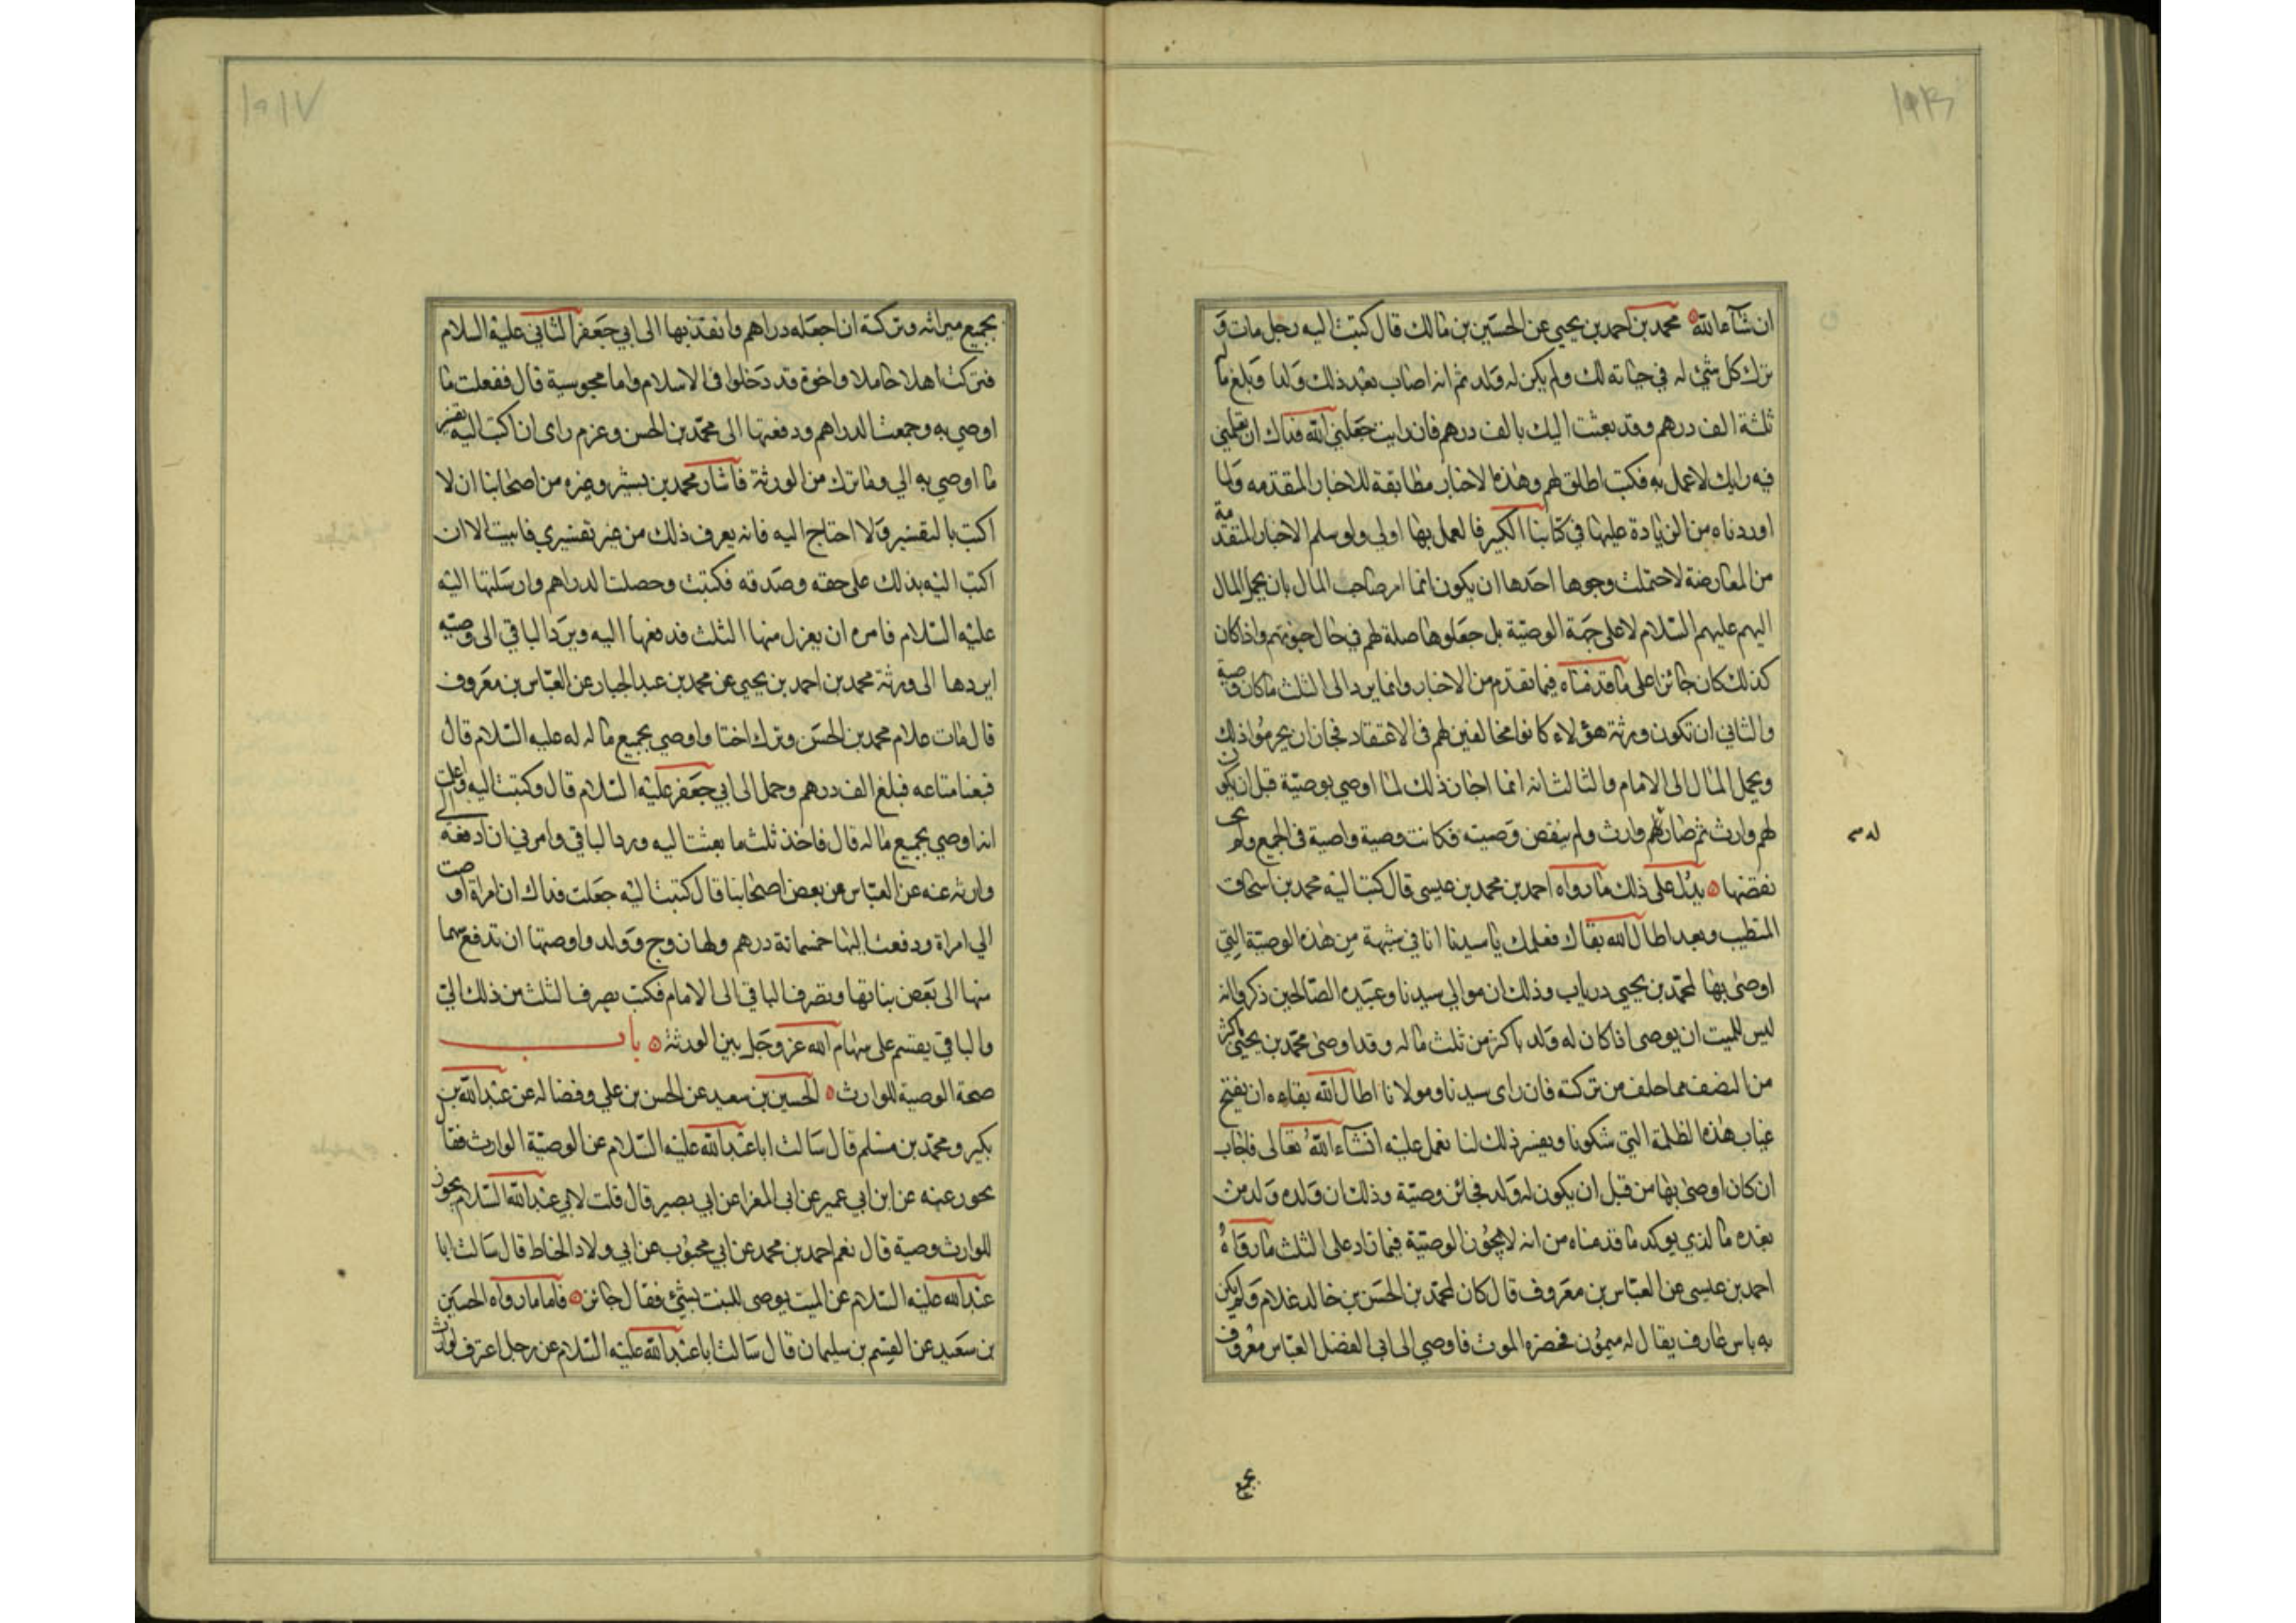 ان شآء الله محمد بن احمد بن يحيى عن الحسين بن مالك قال كتبت اليه رجل مات و
ترك كل شئ له في حياته لك ولم يكن له ولد ثم انه اصاب بعد ذلك ولدا ومبلغ ماله
ثلثة الف درهم وقد بعثت اليك بالف درهم فان رايت جعلني الله فداك ان تعلمني
فيه رايك لاعمل به فكتب اطلق لهم وهذه الاخبار مطابقة للاخبار المقدمه ولما
اوردناه من الزيادة عليها في كتابنا الكبير فالعمل بها اولى ولو سلم الاخبار المتقدمة
من المعارضة لاحتملت وجوها احدها ان يكون انما امر صاحب المال بان يحمل المال
اليهم عليهم السلام لا على جهة الوصية بل جعلوها صلة لهم في حال حيوتهم واذا كان
كذلك كان جائزا على ما قدمناه فيما تقدم من الاخبار وانما يرد الى الثلث ما كان وصية
والثاني ان تكون ورثة هؤلاء كانوا مخالفين لهم في الاعتقاد فجاز ان يحرموا ذلك
ويحمل المال الى الامام والثالث انه انما اجاز ذلك لما اوصي بوصية قبل ان يكون
لهم وارث ثم صار لهم وارث ولم ينقض وصيته فكانت وصية واصية في الجميع ولم
نقضها يدل على ذلك ما رواه احمد بن محمد بن عيسى قال كتب اليه محمد بن اسحاق
المتطبب وبعد اطال الله بقاك فعلمك يا سيدنا انا في شبهة من هذه الوصية التي
اوصى بها لمحمد بن يحيى درياب وذلك ان موالي سيدنا وعبيده الصالحين ذكروا انه
ليس للميت ان يوصى اذا كان له ولد باكثر من ثلث ماله وقد اوصى محمد بن يحيى باكثر
من النصف مما خلف من تركته فان راى سيدنا ومولانا اطال الله بقاءه ان يفتح
غياب هذه الظلمة التي شكونا ويفسر ذلك لنا نعمل عليه انشاء الله تعالى فاجاب
ان كان اوصى بها من قبل ان يكون له ولد فجائز وصية وذلك ان ولده ولد من
بعده ما لذي يوكد ما قدمناه من انه لا يجوز الوصية فيما زاد على الثلث ما رواه
احمد بن عيسى عن العباس بن معروف قال كان لمحمد بن الحسن بن خالد غلام ولم يكن
به باس عارف يقال له ميمون فحضره الموت فاوصي الى ابي الفضل العباس معروف
بجميع
بجميع ميراثه وتركته ان اجعله دراهم وانفذ بها الى ابي جعفر الثاني عليه السلام
فترك اهلا حاملا واخوة قد دخلوا في الاسلام واما مجوسية قال ففعلت ما
اوصي به وجمعت الدراهم ودفعتها الى محمد بن الحسن وعزم راى ان اكتب اليه بتفسير
ما اوصي به الي وما ترك من الورثة فاشار محمد بن بشير وغيره من اصحابنا ان لا
اكتب بالتفسير ولا احتاج اليه فانه يعرف ذلك من غير تفسيري فابيت الا ان
اكتب اليه بذلك على حقه وصدقه فكتبت وحصلت الدراهم وارسلتها اليه
عليه السلام فامره ان يعزل منها الثلث فدفعها اليه ويرد الباقي الى وصيه
ايردها الى ورثة محمد بن احمد بن يحيى عن محمد بن عبد الجبار عن العباس بن معروف
قال مات غلام محمد بن الحسن وترك اختا واوصي بجميع ماله له عليه السلام قال
فبعنا متاعه فبلغ الف درهم وحمل الى ابي جعفر عليه السلام قال وكتبت اليه واعلمت
انه اوصي بجميع ماله قال فاخذ ثلث ما بعثت اليه ورد الباقي وامرني ان ادفعه الى
وارثه عنه عن العباس عن بعض اصحابنا قال كتبت اليه جعلت فداك ان امراة اوصت
الي امراة ودفعت اليها خمسمائة درهم ولها زوج وولد واوصتها ان تدفع سهما
منها الى بعض بناتها وتصرف الباقي الى الامام فكتب يصرف الثلث من ذلك الي
والباقي يقسم على سهام الله عز وجل بين الورثة باب
صحة الوصية للوارث الحسين بن سعيد عن الحسن بن علي وفضاله عن عبد الله بن
بكير ومحمد بن مسلم قال سالت ابا عبد الله عليه السلام عن الوصية الوارث فقال
يجوز عنه عن ابن ابي عمير عن ابي المغرا عن ابي بصير قال قلت لابي عبد الله السلام يجوز
للوارث وصية قال نعم احمد بن محمد عن ابي محبوب عن ابي ولاد الحناط قال سالت ابا
عبد الله عليه السلام عن الميت يوصى للبنت بشئ فقال جائز فاما ما رواه الحسين
بن سعيد عن القسم بن سليمان قال سالت ابا عبد الله عليه السلام عن رجل اعترف لوارث